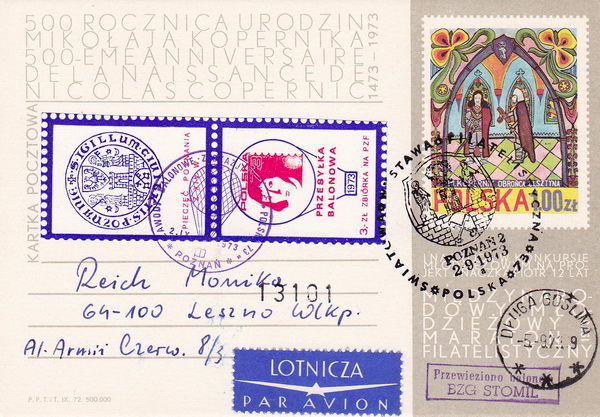 500 ROCZNICA URODZIN
MIKOŁAJA KOPERNIKA
500-EME ANNIVERSAIRE
DE LA NAISSANCE DE
NICOLAS COPERNIC
1473-1973
KARTKA POCZTOWA
SIGILLUM CIVITATIS POZNANIE
PIECZĘĆ POZNANIA
POLSKA 73
PRZESYŁKA
BALONOWA
1973
3.-ZŁ ZBIÓRKA NA PZF
POZNAŃ
M. KOPERNIK OBROŃCĄ OLSZTYNA
POLSKA 1.00 ZŁ
ŚWIATOWA WYSTAWA FILATELISTYCZNA POLSKA 73 POZNAŃ
POZNAŃ 2
2.9.1973
a
Reich Monika
13101
64-100 Leszno Wlkp.
Al. Armii Czerw. 8/3
LOTNICZA
PAR AVION
MARATON
FILATELISTYCZNY
DŁUGA GOŚLINA
Przewieziono balonem
BZG STOMIL
P. P. T. i T. IX. 72. 500.000